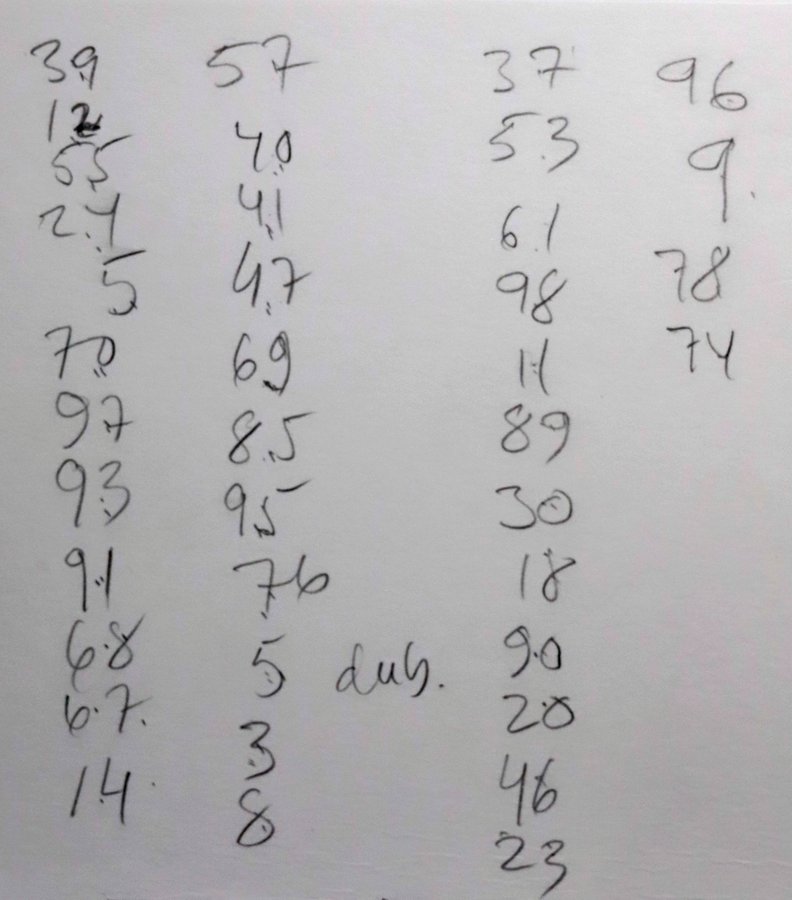 39
12
55
24
5
70
97
93
91
68
67.
14
57
40
41
47
69
85
95
76
5 dub.
3
8
37
53
61
98
11
89
30
18
90
20
46
23
96
9.
78
74